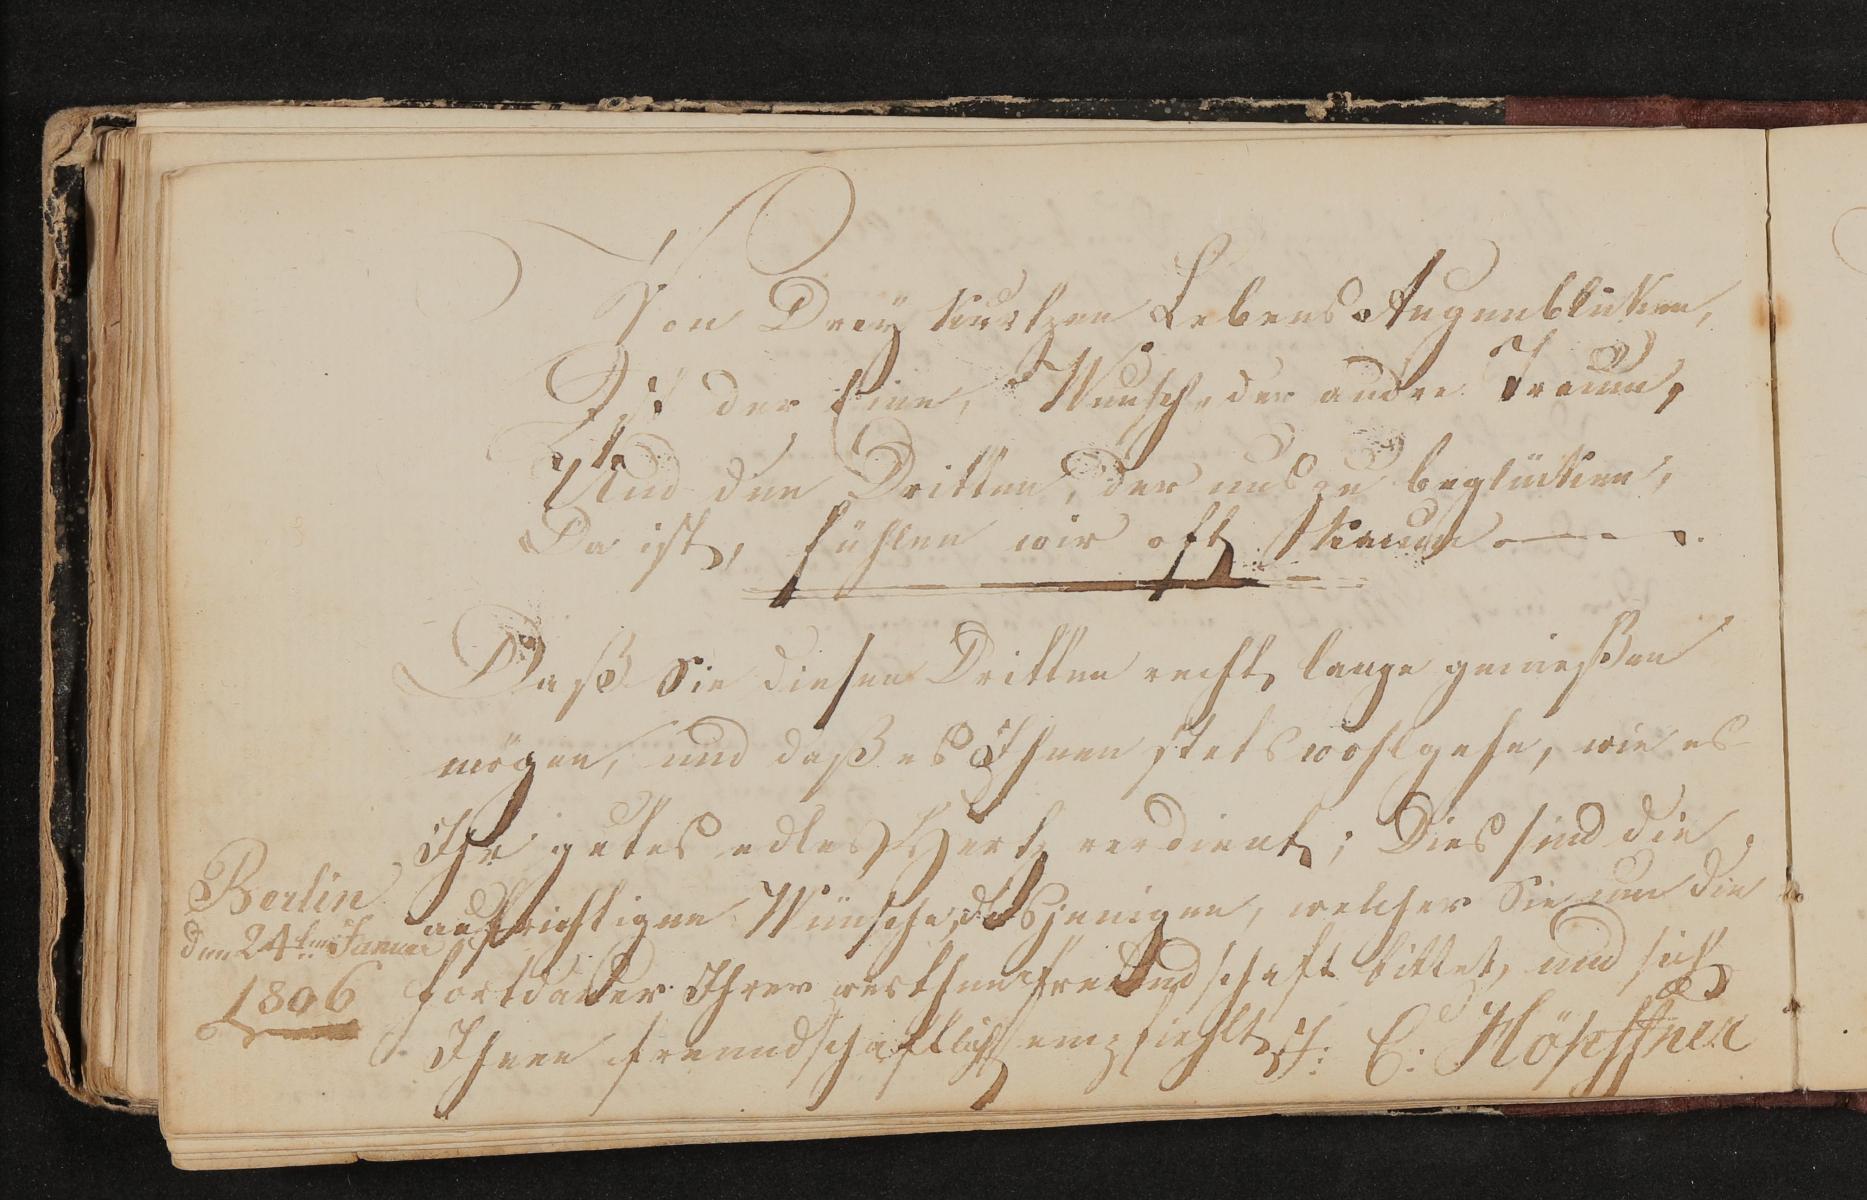 Von Dreÿ kurtzen Lebens Augenblicken,
Ist der Eine, Wunsch, der andre Traum,
Und den Dritten, der uns zu beglücken,
Da ist, fühlen wir oft Kaum
Daß Sie diesen Dritten recht lange genießen
mögen, und daß es Ihnen stets wohlgehe, wie es
Ihr gutes edles Hertz verdient; Dies sind die
aufrichtigen Wünsche desjenigen, welcher Sie um die
fortdauer Ihrer werthen freundschaft bittet, und sich
Ihnen freundschaftlich empfiehlt J: C: Höpffner
Berlin
den 24ten Januar
1806